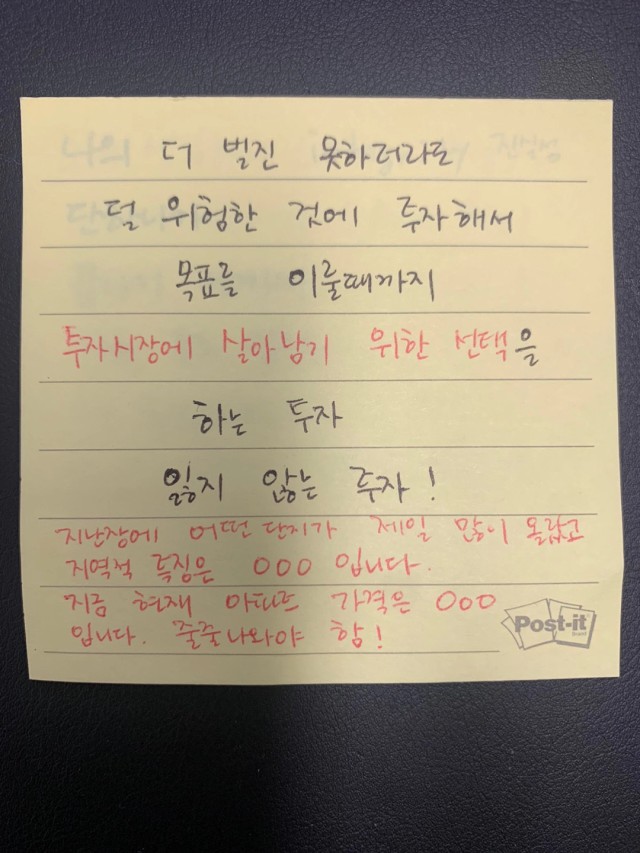 더 벌진 못하더라도
덜 위험한 것에 투자해서
목표를 이룰때까지
투자시장에 살아남기 위한 선택을
하는 투자
잃지 않는 투자!
지난장에 어떤 단지가 제일 많이 올랐고
지역적 특징은 OOO 입니다.
지금 현재 아파트 가격은 OOO
입니다. 줄줄나와야 함!
Post-it